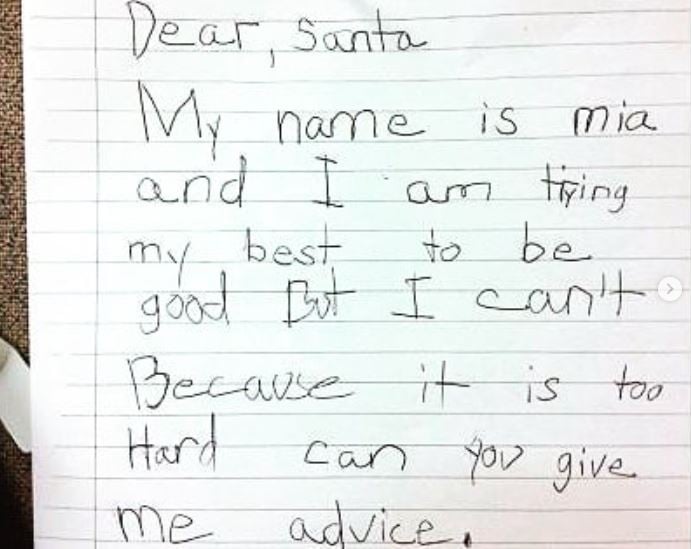 Dear, Santa
My name is mia
and I am trying
my best to be
good But I can't
Because it is too
Hard can you give
me advice.